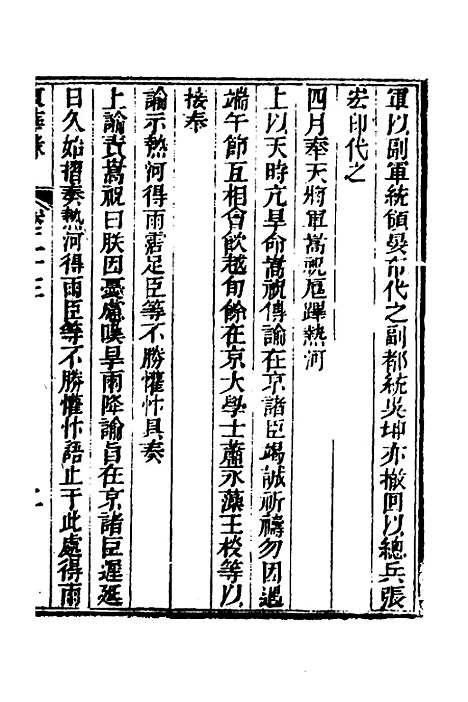 軍以副軍統領晏布代之副都統吳坤亦撤回以總兵張
宏印代之
四月奉天將軍嵩祝扈蹕熱河
上以天時亢旱命嵩祝傳諭在京諸臣竭誠祈禱勿因遇
端午節互相會飲越旬餘在京大學士蕭永藻王掞等以
接奉
諭示熱河得雨霑足臣等不勝懽忭具奏
上諭責嵩祝曰朕因憂慮嘆旱雨降諭旨在京諸臣遲延
日久始摺奏熱河得雨臣等不勝懽忭語止于此處得雨
東華錄 卷二十三